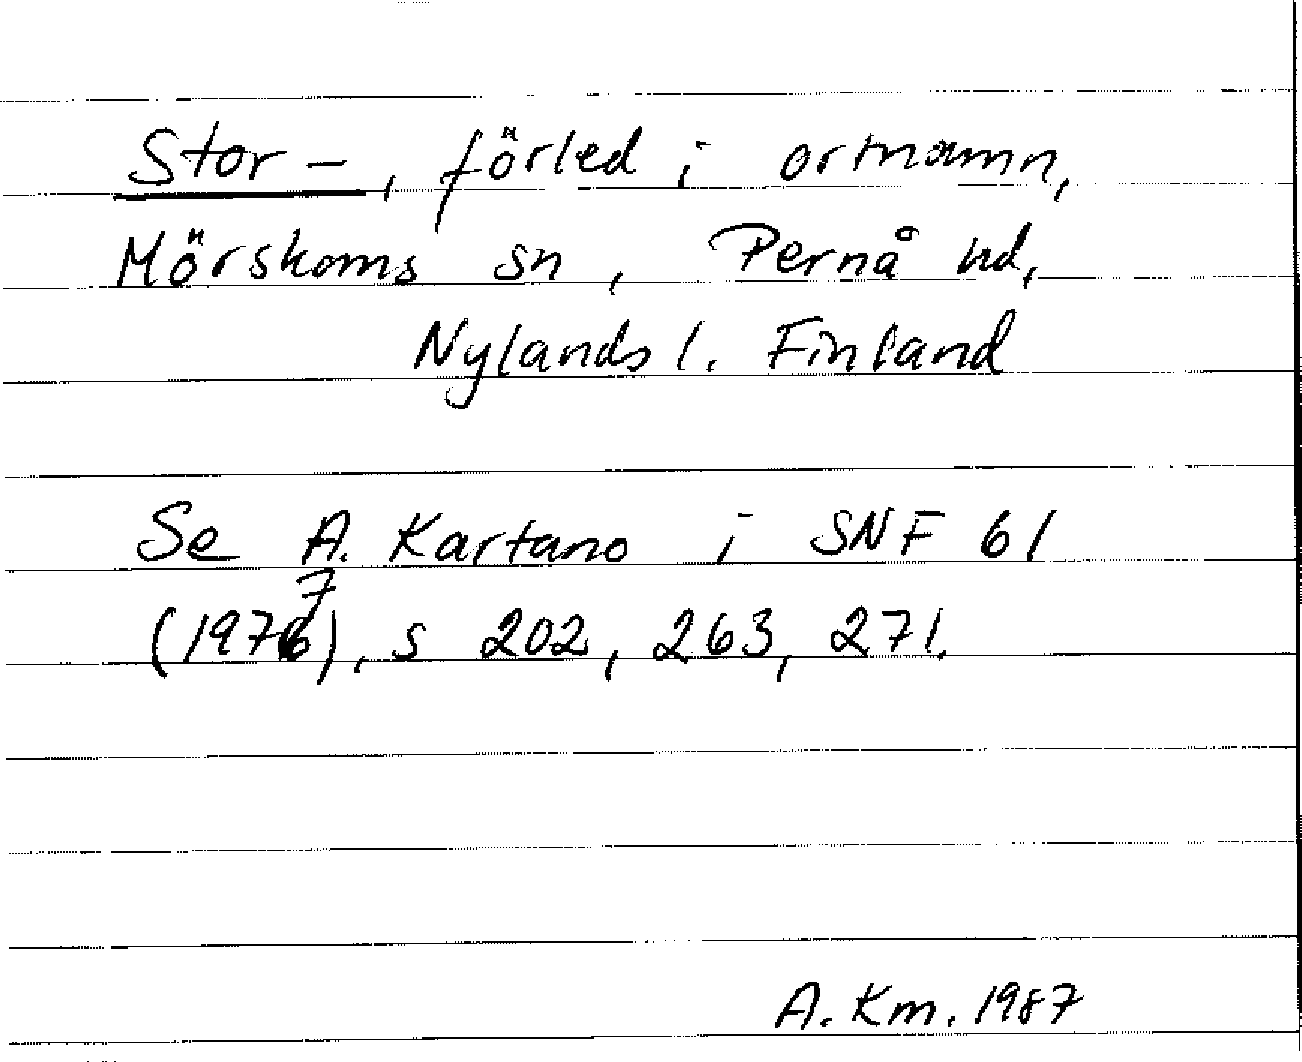 Stor-, förled i ortnamn,
Mörskoms sn, Pernå hd,
Nylands l. Finland
Se A. Kartano i SNF 61
(1977), s 202, 263, 271.
A. Km. 1987